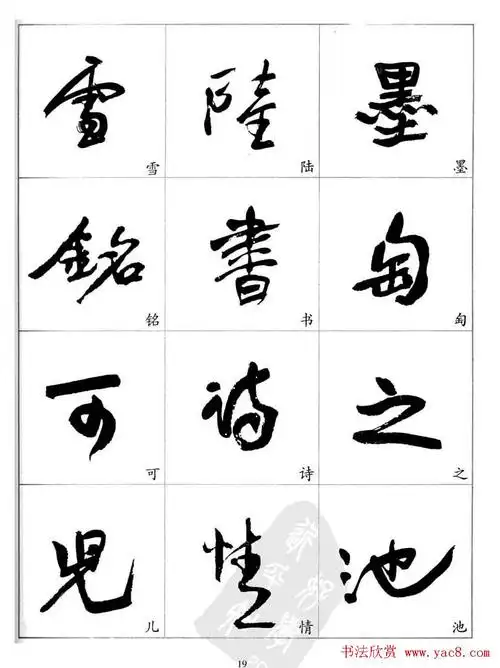 雪 陸 墨
雪 陆 墨
銘 書 匋
铭 书 匋
可 詩 之
可 诗 之
兒 情 池
儿 情 池
19
书法欣赏 www.yac8.com